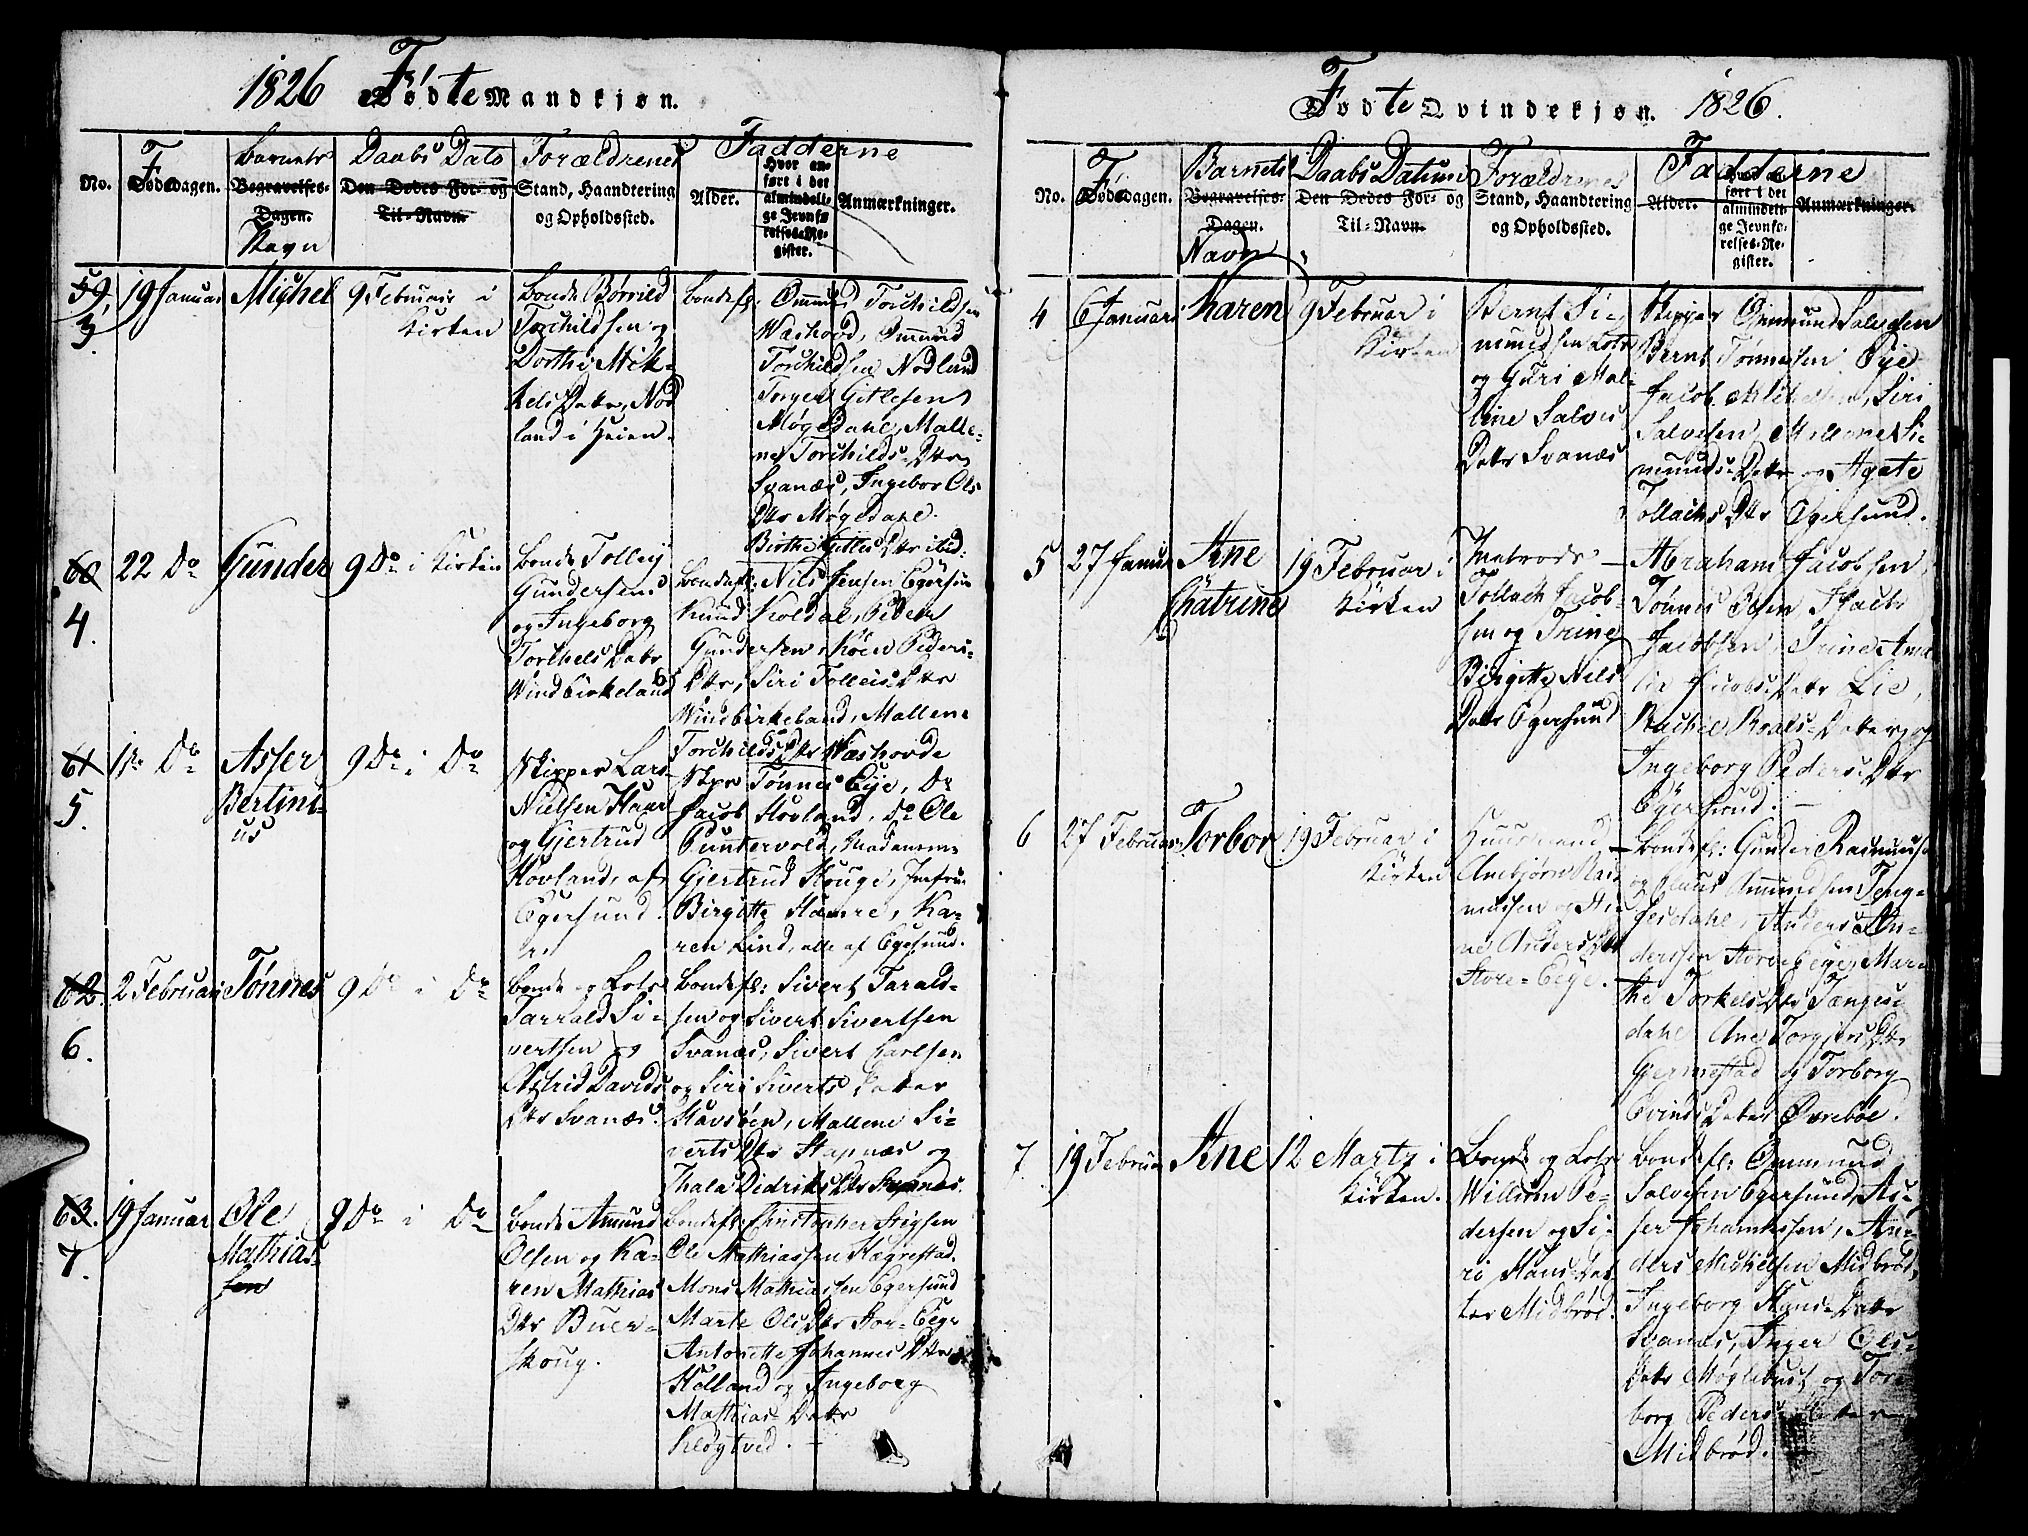 1826 Fødte Mandkjøn.
No. Fødsdagen. Barnets Begravelses-Dagen. Navn
Daabs Dato Den Dødes For- og Til-Navn.
Forældrenes Stand, Haandtering og Opholdssted.
Fadderne
Alder. Hvor anført i det almindelige Jevnførelses-Register. Anmærkninger.
59. 3. 19 Januar Michel 9 Februar i Kirken
Bonde Børrild
Torchildsen og
Dorthe Mik-
kels Datr, Nød
land i Heien.
Bondefl: Ommund Torchildsen
Washovd, Ommund
Torchildsen Nodland
Torger Gitlesen
Møgedahl, Malle-
ne Torchilds-Dtr
Svanæs, Ingebor Ols
Dtr Møgedahl.
Birthe Gitles Dtr ibid:
60 4. 22 Do Gunder 9 Do i Kirken
Bonde Tolleiv
Gundersen
og Ingeborg
Torchels Datr
Windbirkeland
Bondefl: Nils Jensen Egersun
Knud Koldal, Peder
Gundersen
Dtr, Siri Tolleis Dtr
Windbirkeland, Mallene
Torchilds Dtr Wæshovde
61 5. Do Asser Bertini-us 9 Do i Do
Skipper Lars
Nielsen Haar
og Gjertrud
Hovland, af
Egersund.
Skpr Tønnes Eye, Do
Jacob Hovland, Do Ole
Puntervold, Madamme
Gjertrud Houge, Jomfru
Birgitte Hamre, Ka-
ren Lind, alle af Egersund.
62. 6. 2 Februar Tønnes 9 Do i Do
Bonde og Lots
Tarrald Si-
vertsen og
Astrid Davids
Dtr Svanæs.
Bondefl: Sivert Tarald-
sen og Sivert Sivertsen
Svanæs, Sivert Carlsen
og Siri Siverts Datter
Havsøen, Mallene Si-
verts Dtr Stapnæs og
Thala Didriks Dtr Svanæs.
63. 7. 19 Januar Ole Mathias-sen 9 Do i Do
Bonde Amund
Olsen og Ka-
ren Mathias
Dtr Buer-
skoug.
Bondefl: Christopher Stigsen
Ole Mathiassen Hægrestad
Mons Mathiassen Egersund
Marte Ols Dtr Stor-Eege
Antonette Johannes Dtr
Holland og Ingeborg
Mathias-Datr
Kløgtved.
Fødte Qvindekjøn. 1826.
No. Fødsdagen. Barnets Begravelses-Dagen. Navn
Daabs Datum Den Dødes For- og Til-Navn.
Forældrenes Stand, Haandtering og Opholdssted.
Fadderne
Alder. Hvor anført i det almindelige Jevnførelses-Register. Anmærkninger.
4 6 Januar Karen 9 Februar i Kirken
Bernt Si-
mundsen Lots
og Guri Mal-
lene Salves
Datr Svanæs
Skipper Ommund Salvesen
Bernt Tønnesen Eye
Jacob Mikelsen, Siri
Salvesen, Mallene Si-
munds-Datr og Agate
Tollachs Dtr Egersund.
5 27 Januar Ane Chatrine 19 Februar i Kirken
Tollach Jacob-
sen og Trine
Birgitte Nils
Datr Egersund
Abraham Jacobsen
Tønnes Olsen, Jacob
Jacobsen, Trine Ama
lia Jacobs Datr Lie,
Rachel Roalds-Datter, og
Ingeborg Peders Dtr
Egersund.
6 27 Februar Torbor 19 Februar i Kirken
Huusmand
Anbjørn Ras
mussen og An-
ne Anders Dtr
Store-Eege.
Bondefl: Gunder Rasmuss
og Ommundsen Teng-
esdahl, Anders An-
dersen Store Eege, Mar-
the Torkels Dtr Tænges-
dahl Ane Torgers Dtr
Gjermestad og Torborg
Evinds Datter Øvrebøe.
7 19 Februar Ane 12 Marty i Kirken.
Bonde og Lots
Willum Pe-
dersen og Si-
ri Hans Dat
ter Midbrød.
Bondefl: Ommund
Salvesen Egersund, As-
ser Johannesen, An-
ders Michelsen Midbrød,
Ingeborg Hans-Datr
Svanæs, Inger Ols-
Datr Møglebust og Tor-
borg Peders-Datter
Midbrød.